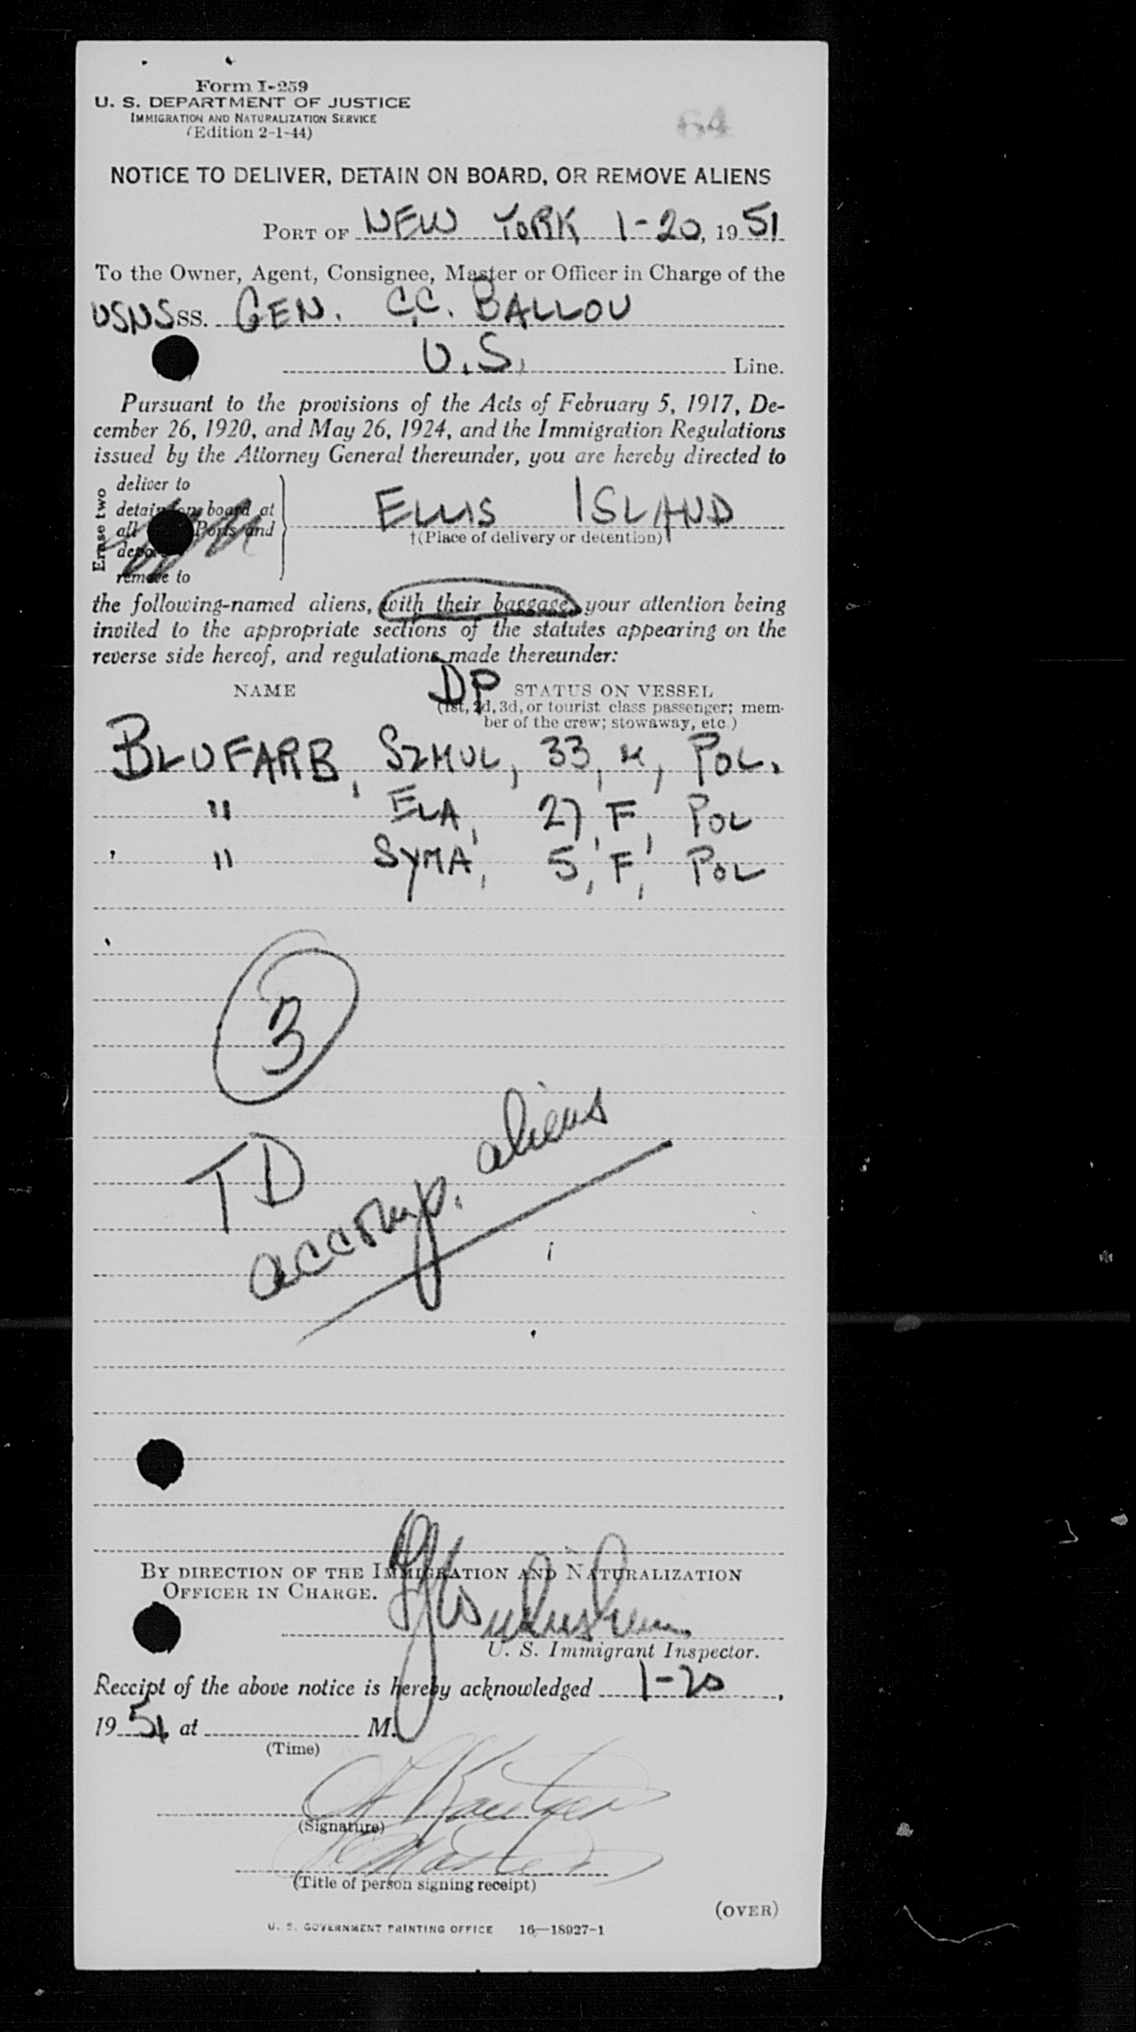 Form I-259
U. S. DEPARTMENT OF JUSTICE
IMMIGRATION AND NATURALIZATION SERVICE
(Edition 2-1-44)
64
NOTICE TO DELIVER, DETAIN ON BOARD, OR REMOVE ALIENS
PORT OF NEW YORK 1-20, 1951
To the Owner, Agent, Consignee, Master or Officer in Charge of the
USNS SS. GEN. C.C. BALLOU
U.S. Line.
Pursuant to the provisions of the Acts of February 5, 1917, De-
cember 26, 1920, and May 26, 1924, and the Immigration Regulations
issued by the Attorney General thereunder, you are hereby directed to
Erase two
deliver to
detain on board at
all Ports and
remove to
ELLIS ISLAND
†(Place of delivery or detention)
the following-named aliens, with their baggage, your attention being
invited to the appropriate sections of the statutes appearing on the
reverse side hereof, and regulations made thereunder:
NAME DP STATUS ON VESSEL
(1st, 2d, 3d, or tourist class passenger; mem-
ber of the crew; stowaway, etc.)
BLUFARB, SZMUL, 33, M, POL.
" ELA, 27, F, POL
" SYMA, 5, F, POL
3
TD
accomp. aliens
BY DIRECTION OF THE IMMIGRATION AND NATURALIZATION
OFFICER IN CHARGE.
U. S. Immigrant Inspector.
Receipt of the above notice is hereby acknowledged 1-20,
1951 at M.
(Time)
(Signature)
Master
(Title of person signing receipt)
(OVER)
U. S. GOVERNMENT PRINTING OFFICE 16—18927-1